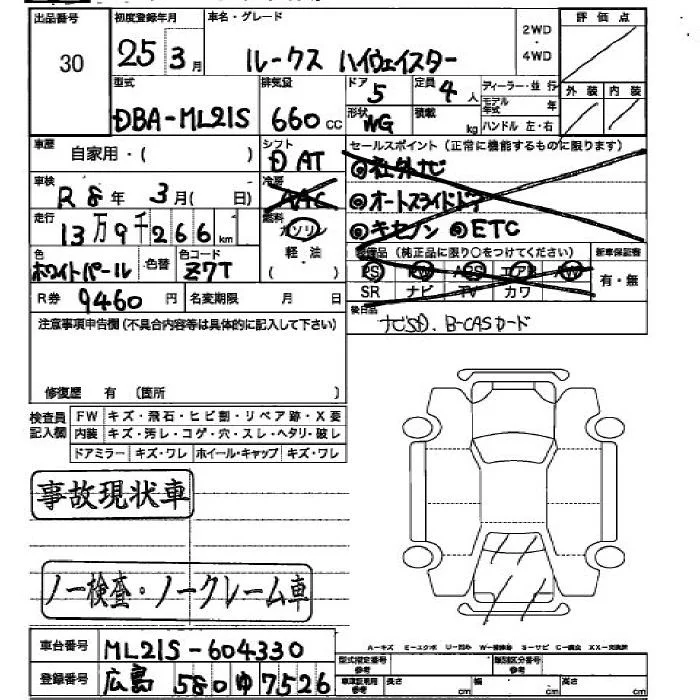 出品番号 30
初度登録年月 25 3月
車名・グレード ルークス ハイウェイスター
2WD ・ 4WD
評価点
外装 内装
型式 DBA-ML21S
排気量 660 cc
ドア 5
定員 4人
形状 WG
積載 kg
ディーラー・並行
モデル年式 年
ハンドル 左・右
車歴 自家用・( )
シフト D AT
車検 R8年 3月( 日)
冷房 AAC
走行 13万9千266km
燃料 ガソリン 軽・油
色 ホワイトパール 色替
色コード Z7T
R券 9460円
名変期限 月 日
セールスポイント(正常に機能するものに限ります)
◎社外ナビ
◎オートスライドドア
◎キセノン ◎ETC
装備品(純正品に限り○をつけてください)
新車保証書 有・無
PS PW ABS エアB AW
SR ナビ TV カワ
後日品 ナビSD. B-CASカード
注意事項申告欄(不具合内容等は具体的に記入して下さい)
修復歴 有 (箇所 )
検査員記入欄
FW キズ・飛石・ヒビ割・リペア跡・X要
内装 キズ・汚レ・コゲ・穴・スレ・ヘタリ・破レ
ドアミラー キズ・ワレ ホイール・キャップ キズ・ワレ
事故現状車
ノー検査・ノークレーム車
車台番号 ML21S-604330
登録番号 広島 580 ゆ 7526
A-キズ E-エクボ U-凹み W-補修跡 S-サビ C-腐食 XX-交換済
型式指定番号 参考
類別区分番号 参考
車庫証明用 参考
長さ cm 幅 cm 高さ cm